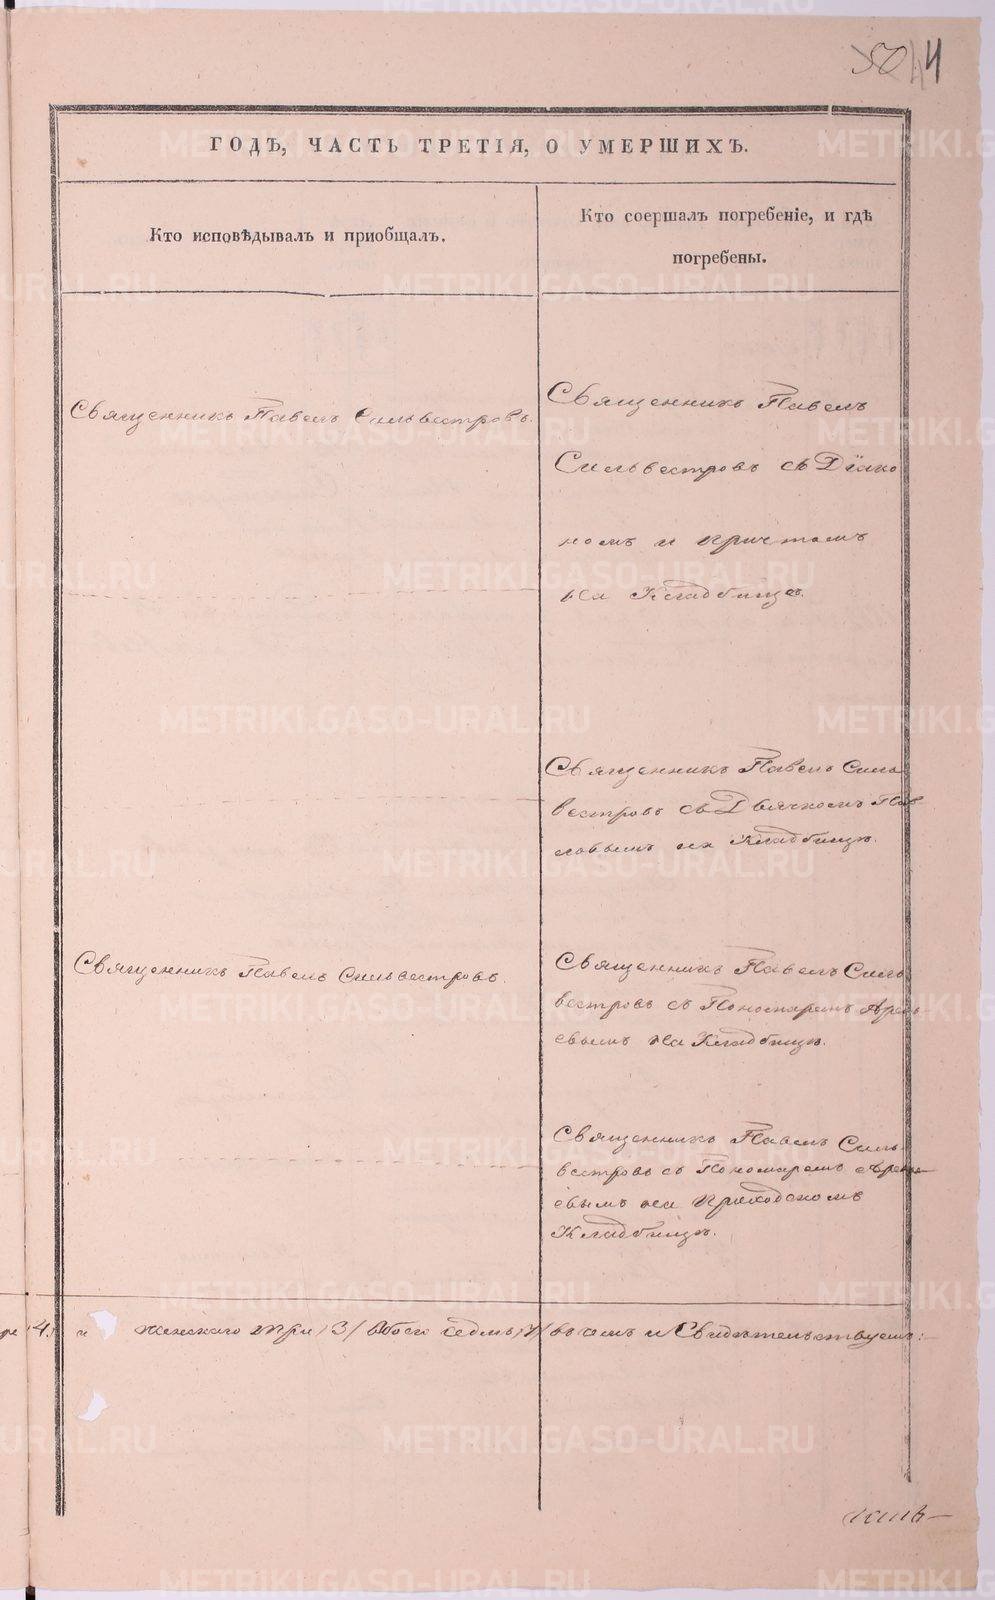 50 44
ГОДЪ, ЧАСТЬ ТРЕТІЯ, О УМЕРШИХЪ.
Кто исповѣдывалъ и пріобщалъ.
Кто соершалъ погребеніе, и гдѣ
погребены.
Священникъ Павелъ Сильвестровъ.
Священникъ Павелъ
Сильвестровъ съ Діако
номъ и причтомъ
на Кладбищѣ.
Священникъ Павелъ Силь
вестровъ съ Дьячкомъ Пав
ловымъ на Кладбищѣ.
Священникъ Павелъ Сильвестровъ.
Священникъ Павелъ Силь
вестровъ съ Пономаремъ
евымъ на Кладбищѣ.
Священникъ Павелъ Силь
вестровъ съ Пономаремъ
евымъ на приходскомъ
Кладбищѣ.
4. и женскаго три /3/ обоего седмь /7/ въ чемъ и Свидѣтельствуемъ:
METRIKI.GASO-URAL.RU